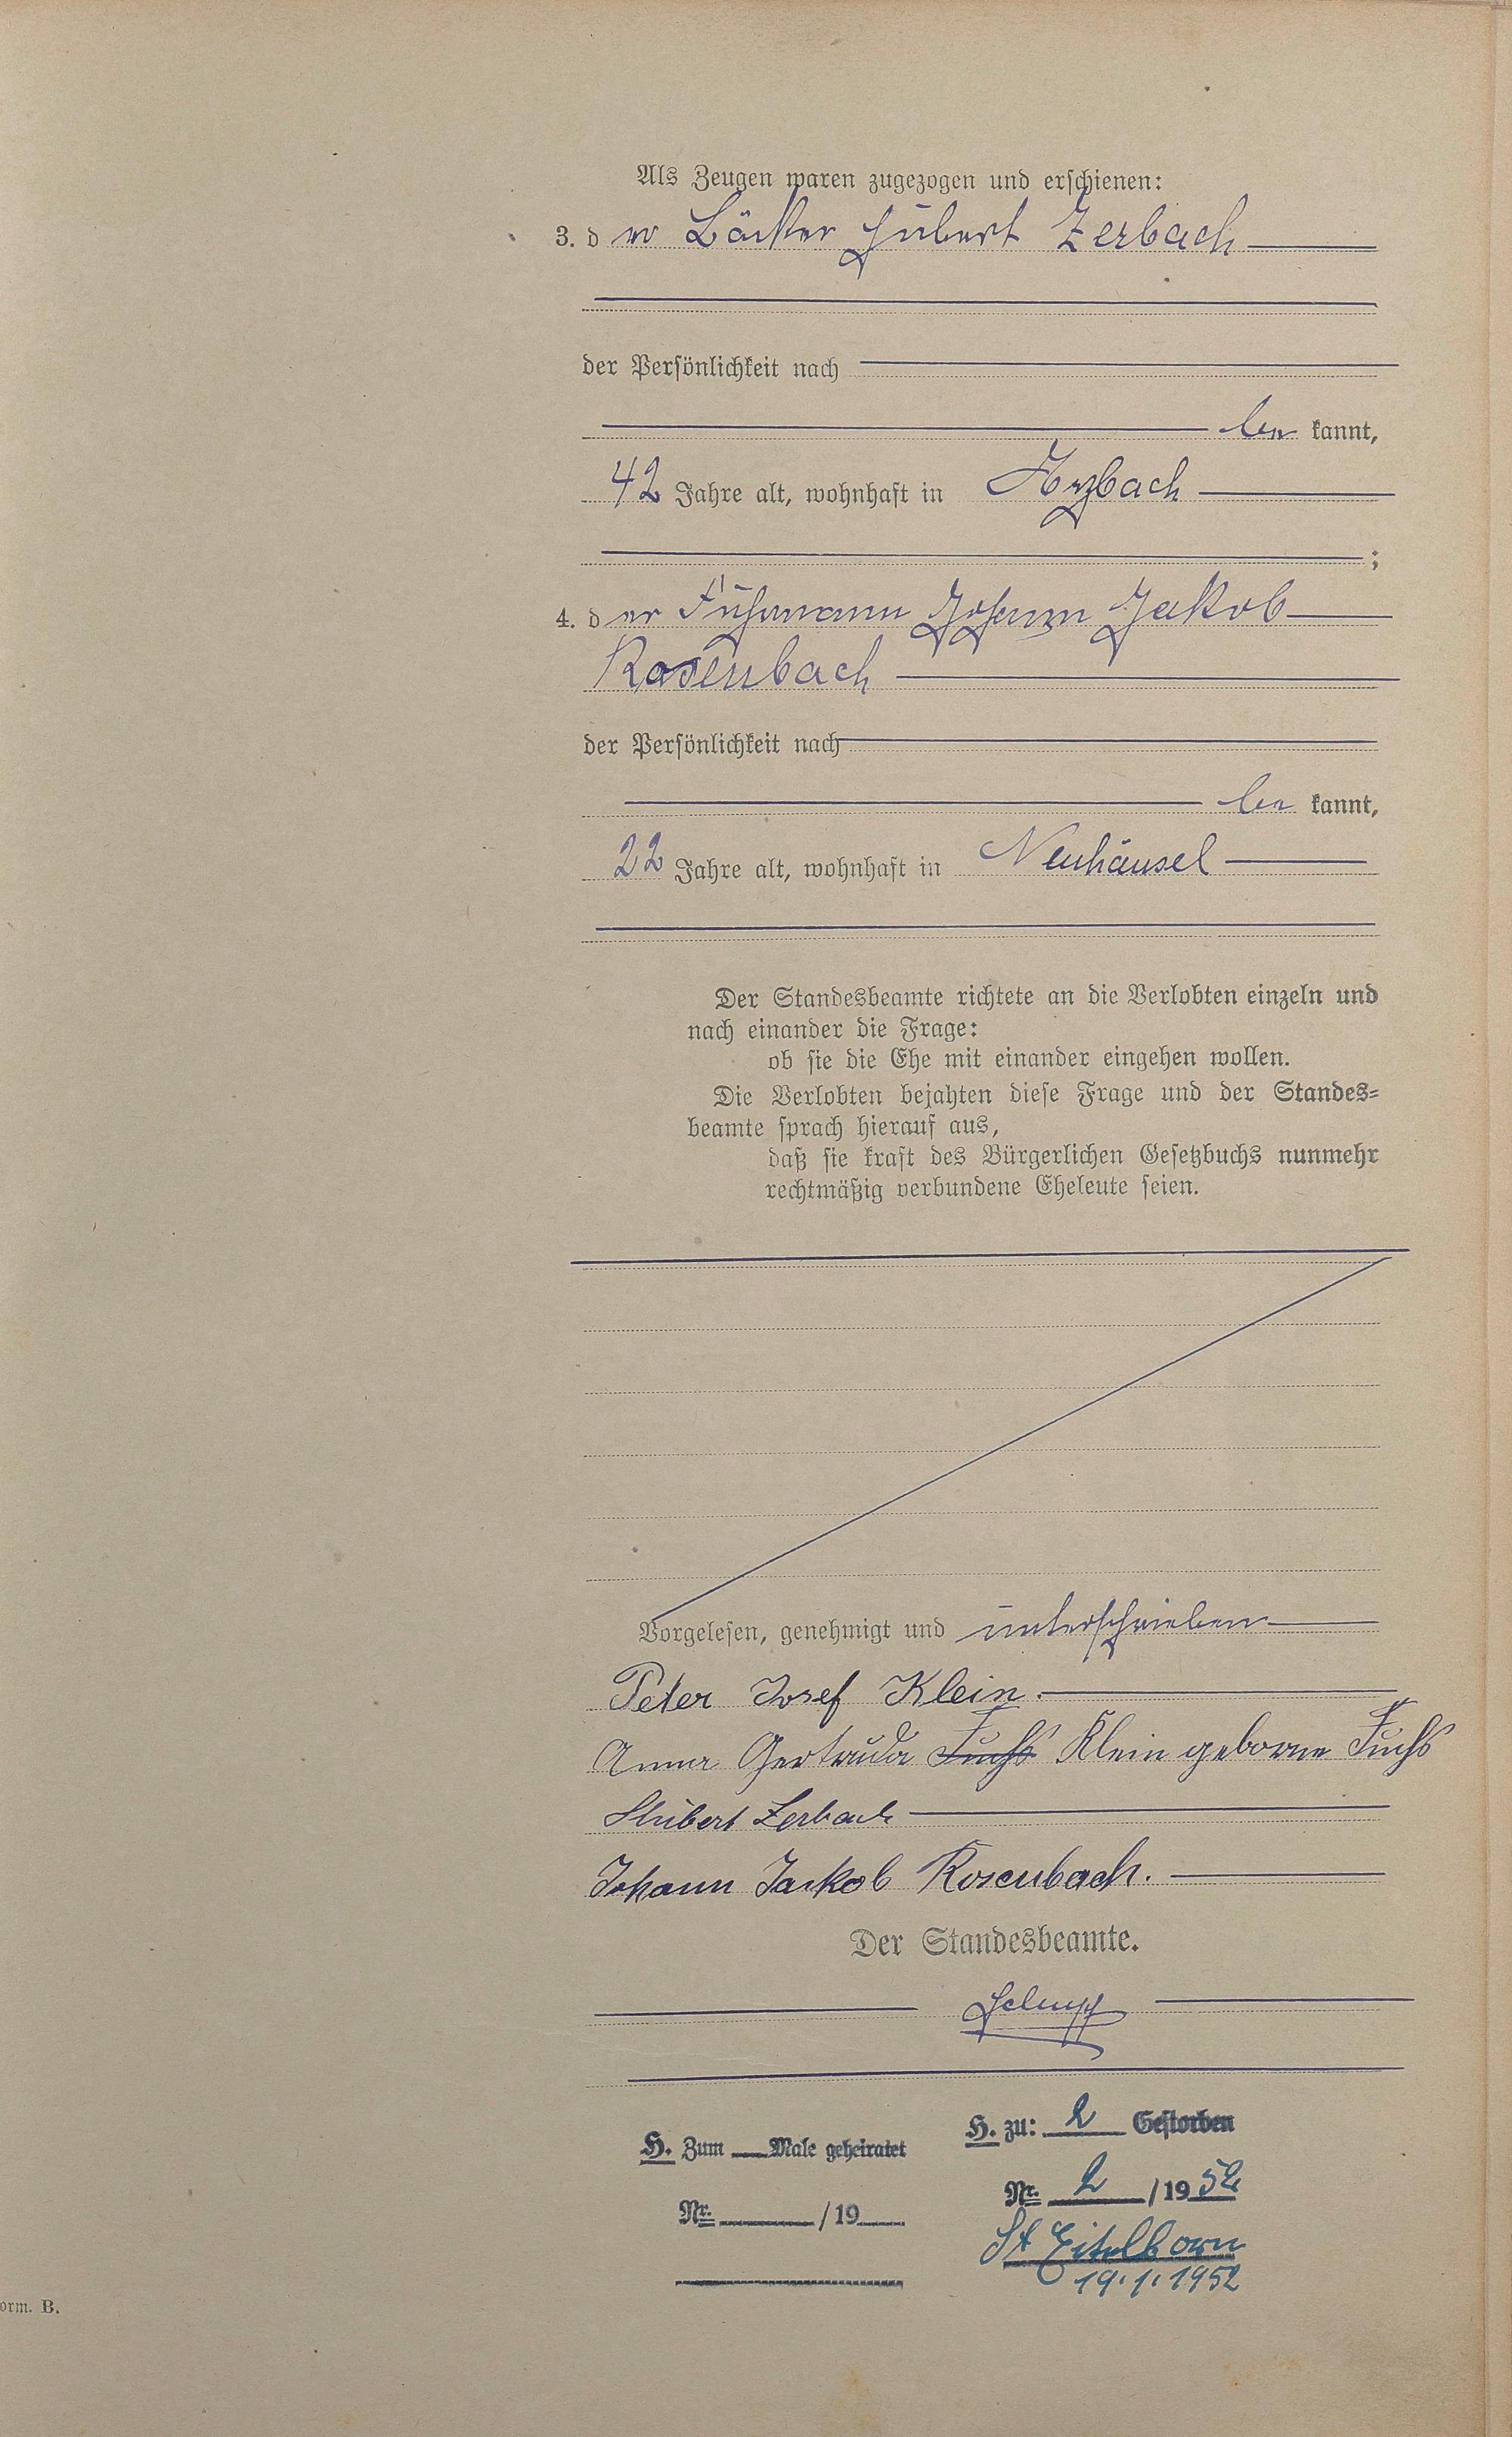 Als Zeugen waren zugezogen und erschienen:
3. der Bäcker Hubert Zerbach
der Persönlichkeit nach
be kannt,
42 Jahre alt, wohnhaft in Arzbach
;
4. der Fuhrmann Johann Jakob
Rosenbach
der Persönlichkeit nach
be kannt,
22 Jahre alt, wohnhaft in Neuhäusel
Der Standesbeamte richtete an die Verlobten einzeln und
nach einander die Frage:
ob sie die Ehe mit einander eingehen wollen.
Die Verlobten bejahten diese Frage und der Standes=
beamte sprach hierauf aus,
daß sie kraft des Bürgerlichen Gesetzbuchs nunmehr
rechtmäßig verbundene Eheleute seien.
Vorgelesen, genehmigt und unterschrieben
Peter Josef Klein.
Anna Gertruda Fuchs Klein geborne Fuchs
Hubert Zerbach
Johann Jakob Rosenbach.
Der Standesbeamte.
H. Zum Male geheiratet
Nr. /19
H. zu: 2 Gestorben
Nr. 2 /1952
St Eitelborn
19.1.1952
orm. B.